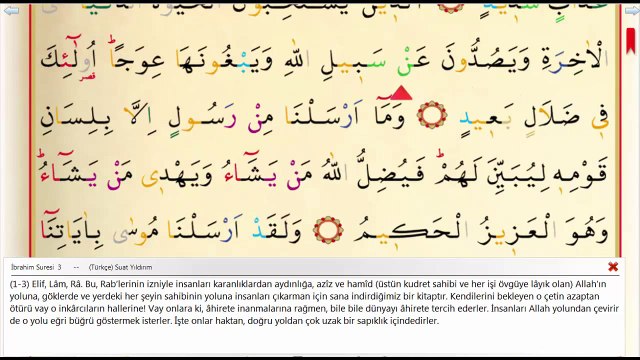 عَذَابٍ شَدِيدٍ ۝ اَلَّذ۪ينَ يَسْتَحِبُّونَ الْحَيٰوةَ الدُّنْيَا
الْاٰخِرَةِ وَيَصُدُّونَ عَنْ سَب۪يلِ اللّٰهِ وَيَبْغُونَهَا عِوَجًاۜ اُو۬لٰٓئِكَ
قصر
ف۪ي ضَلَالٍ بَع۪يدٍ ۝ وَمَٓا اَرْسَلْنَا مِنْ رَسُولٍ اِلَّا بِلِسَانِ
قَوْمِه۪ لِيُبَيِّنَ لَهُمْۜ فَيُضِلُّ اللّٰهُ مَنْ يَشَٓاءُ وَيَهْد۪ي مَنْ يَشَٓاءُۜ
وَهُوَ الْعَز۪يزُ الْحَك۪يمُ ۝ وَلَقَدْ اَرْسَلْنَا مُوسٰى بِاٰيَاتِنَٓا
İbrahim Suresi 3 -- (Türkçe) Suat Yıldırım
(1-3) Elif, Lâm, Râ. Bu, Rab’lerinin izniyle insanları karanlıklardan aydınlığa, azîz ve hamîd (üstün kudret sahibi ve her işi övgüye lâyık olan) Allah'ın
yoluna, göklerde ve yerdeki her şeyin sahibinin yoluna insanları çıkarman için sana indirdiğimiz bir kitaptır. Kendilerini bekleyen o çetin azaptan
ötürü vay o inkârcıların hallerine! Vay onlara ki, âhirete inanmalarına rağmen, bile bile dünyayı âhirete tercih ederler. İnsanları Allah yolundan çevirir
de o yolu eğri büğrü göstermek isterler. İşte onlar haktan, doğru yoldan çok uzak bir sapıklık içindedirler.